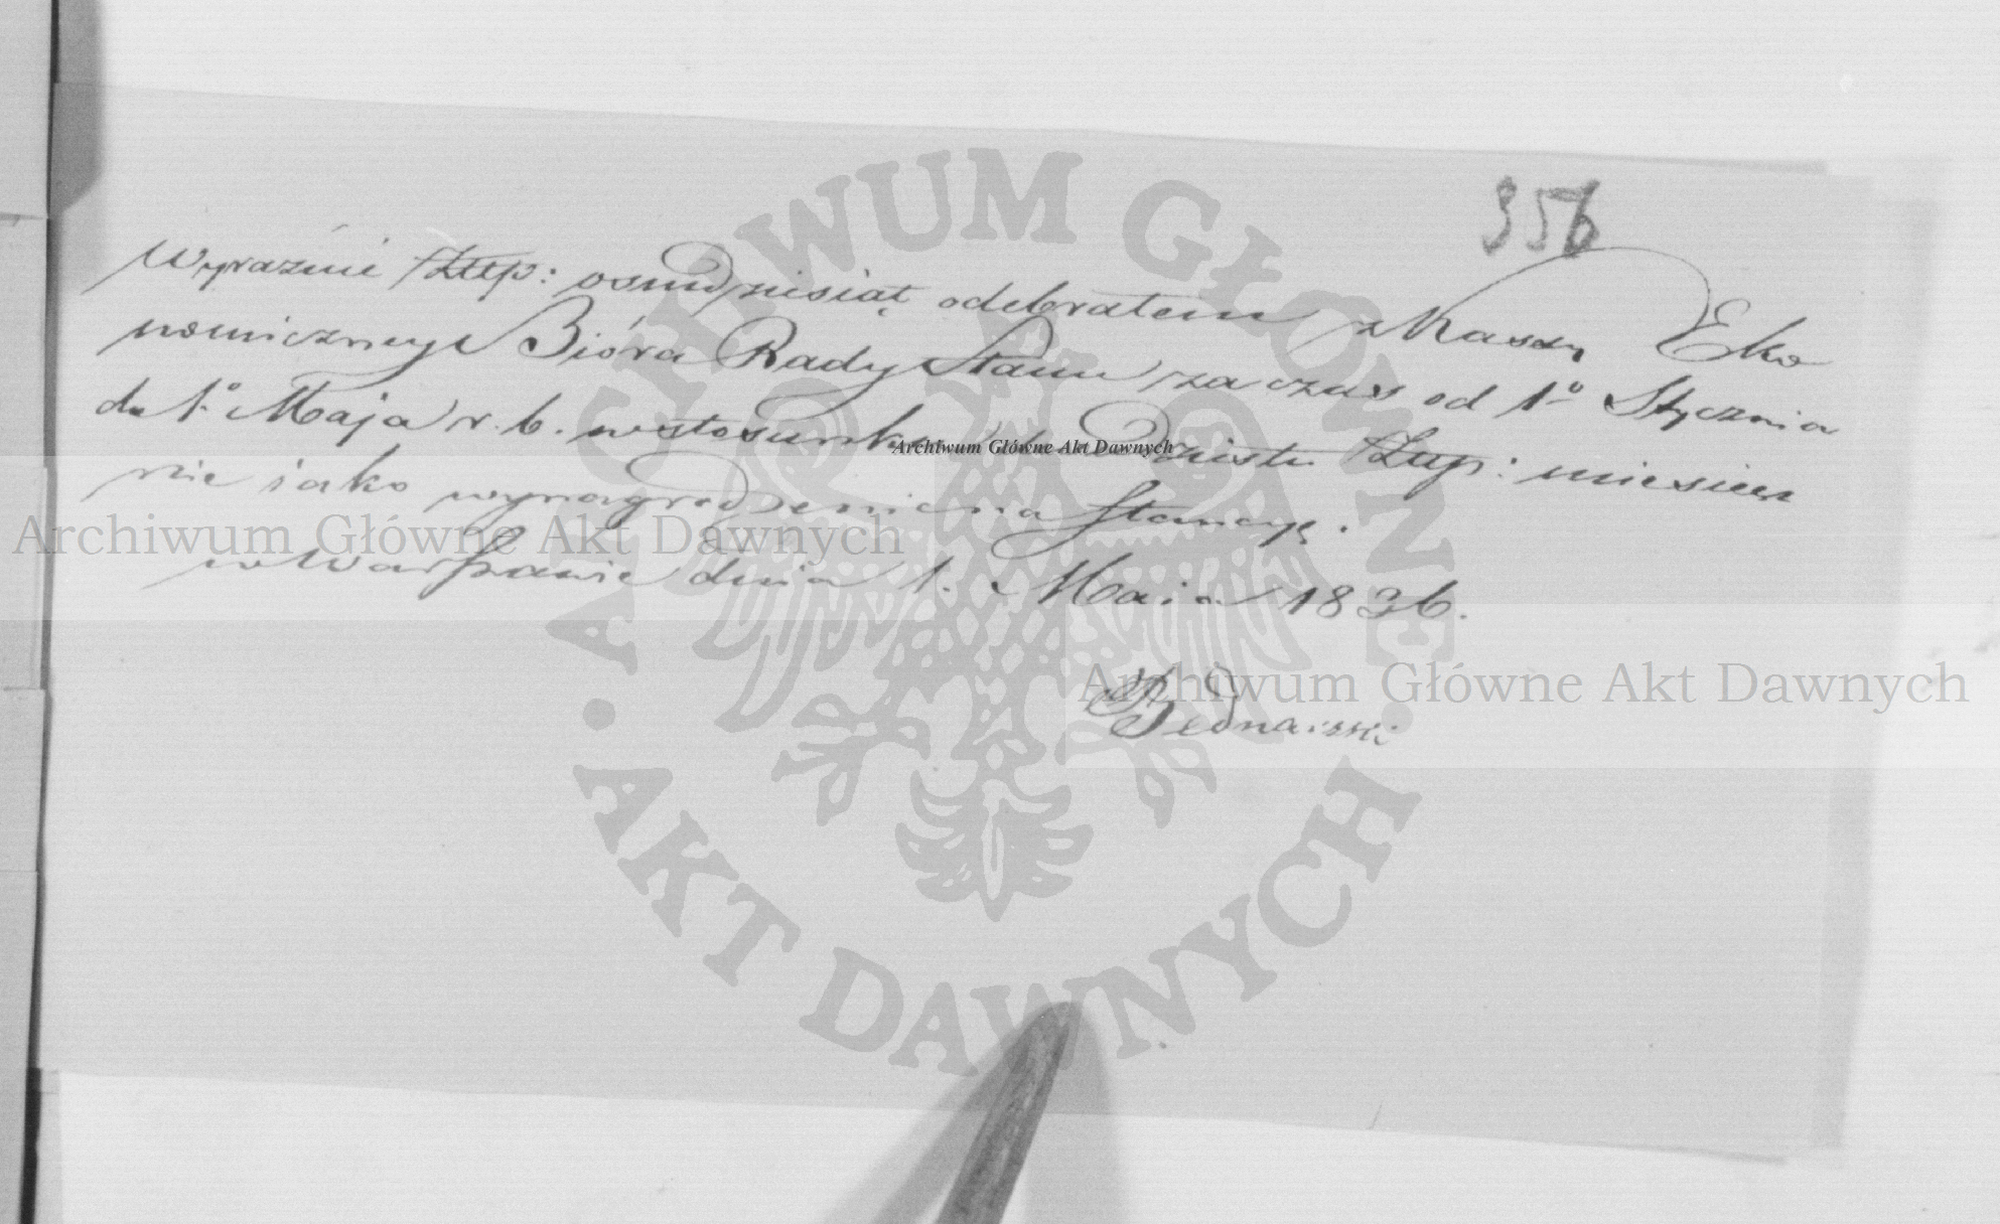 356
Wyraźnie Złłp: osmdziesiąt odebrałem z Kassy Eko
nomiczney Bióra Rady Stanu za czas od 1º Stycznia
do 1º Maja r. b. w stosunku dwudziestu Złłp: miesięcz
nie iako wynagrodzenie na stancyę.
w Warszawie dnia 1. Maia 1836.
Bednarski
ARCHIWUM GŁÓWNE AKT DAWNYCH
Archiwum Główne Akt Dawnych
Archiwum Główne Akt Dawnych
Archiwum Główne Akt Dawnych